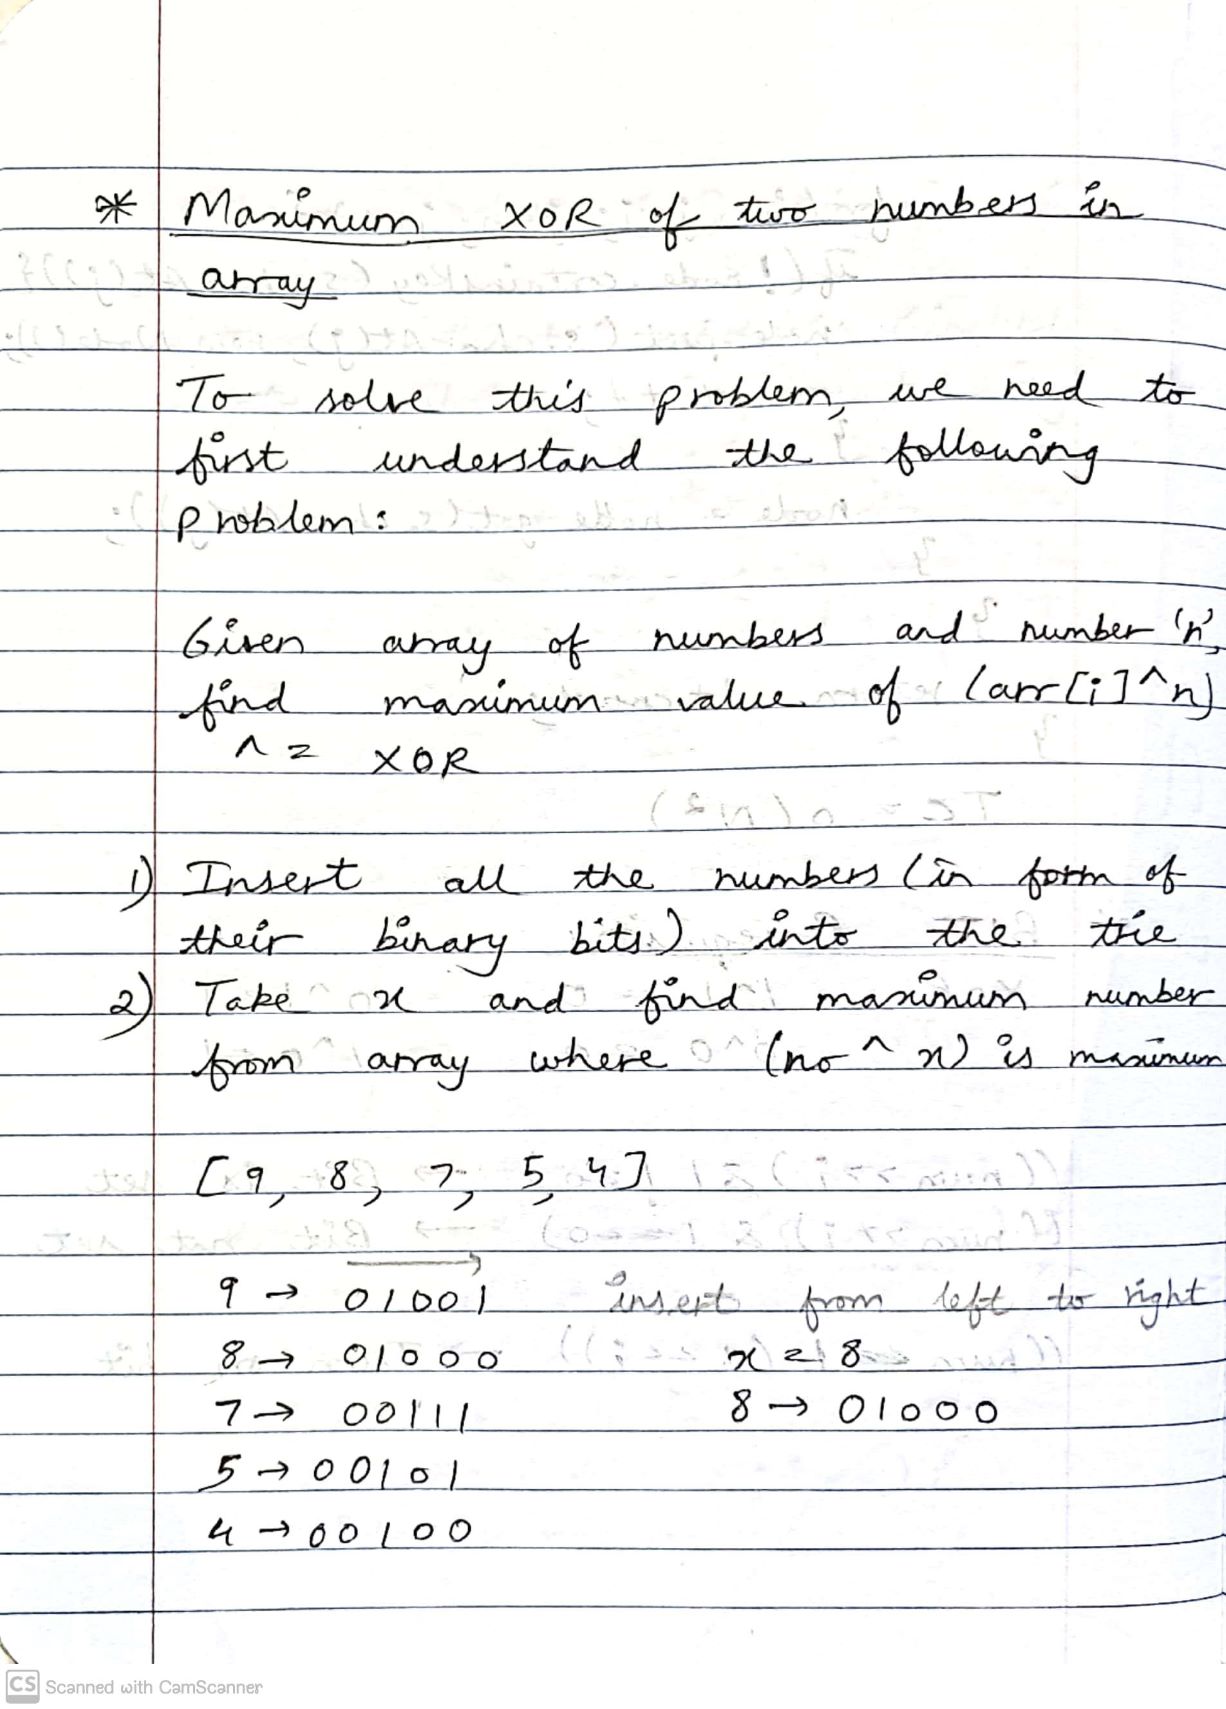 * Maximum XOR of two numbers in
array
To solve this problem, we need to
first understand the following
problem:
Given array of numbers and number 'n',
find maximum value of (arr[i]^n)
^ = XOR
1) Insert all the numbers (in form of
their binary bits) into the trie
2) Take x and find maximum number
from array where (no ^ x) is maximum
[9, 8, 7, 5, 4]
9 → 01001 insert from left to right
8 → 01000 x = 8
7 → 00111 8 → 01000
5 → 00101
4 → 00100
CS Scanned with CamScanner